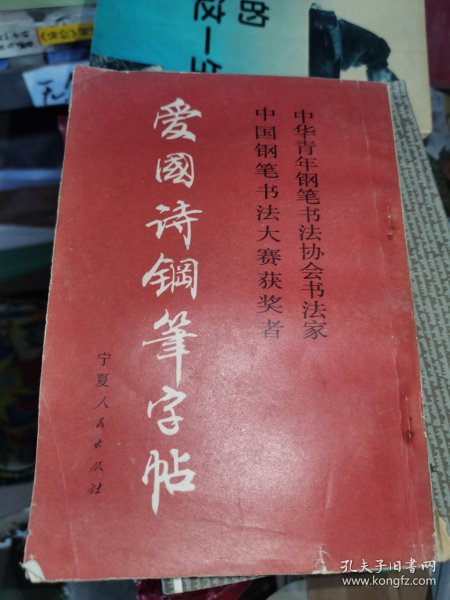 中华青年钢笔书法协会书法家
中国钢笔书法大赛获奖者
爱國诗鋼筆字帖
宁夏人民出版社
孔夫子旧书网
www.kongfz.com